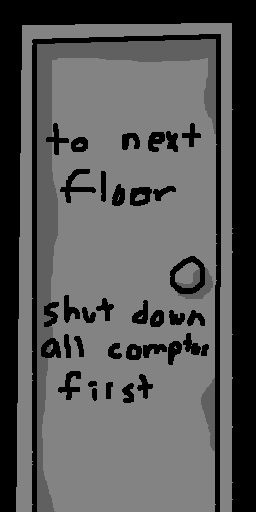 to next
floor
shut down
all compter
first